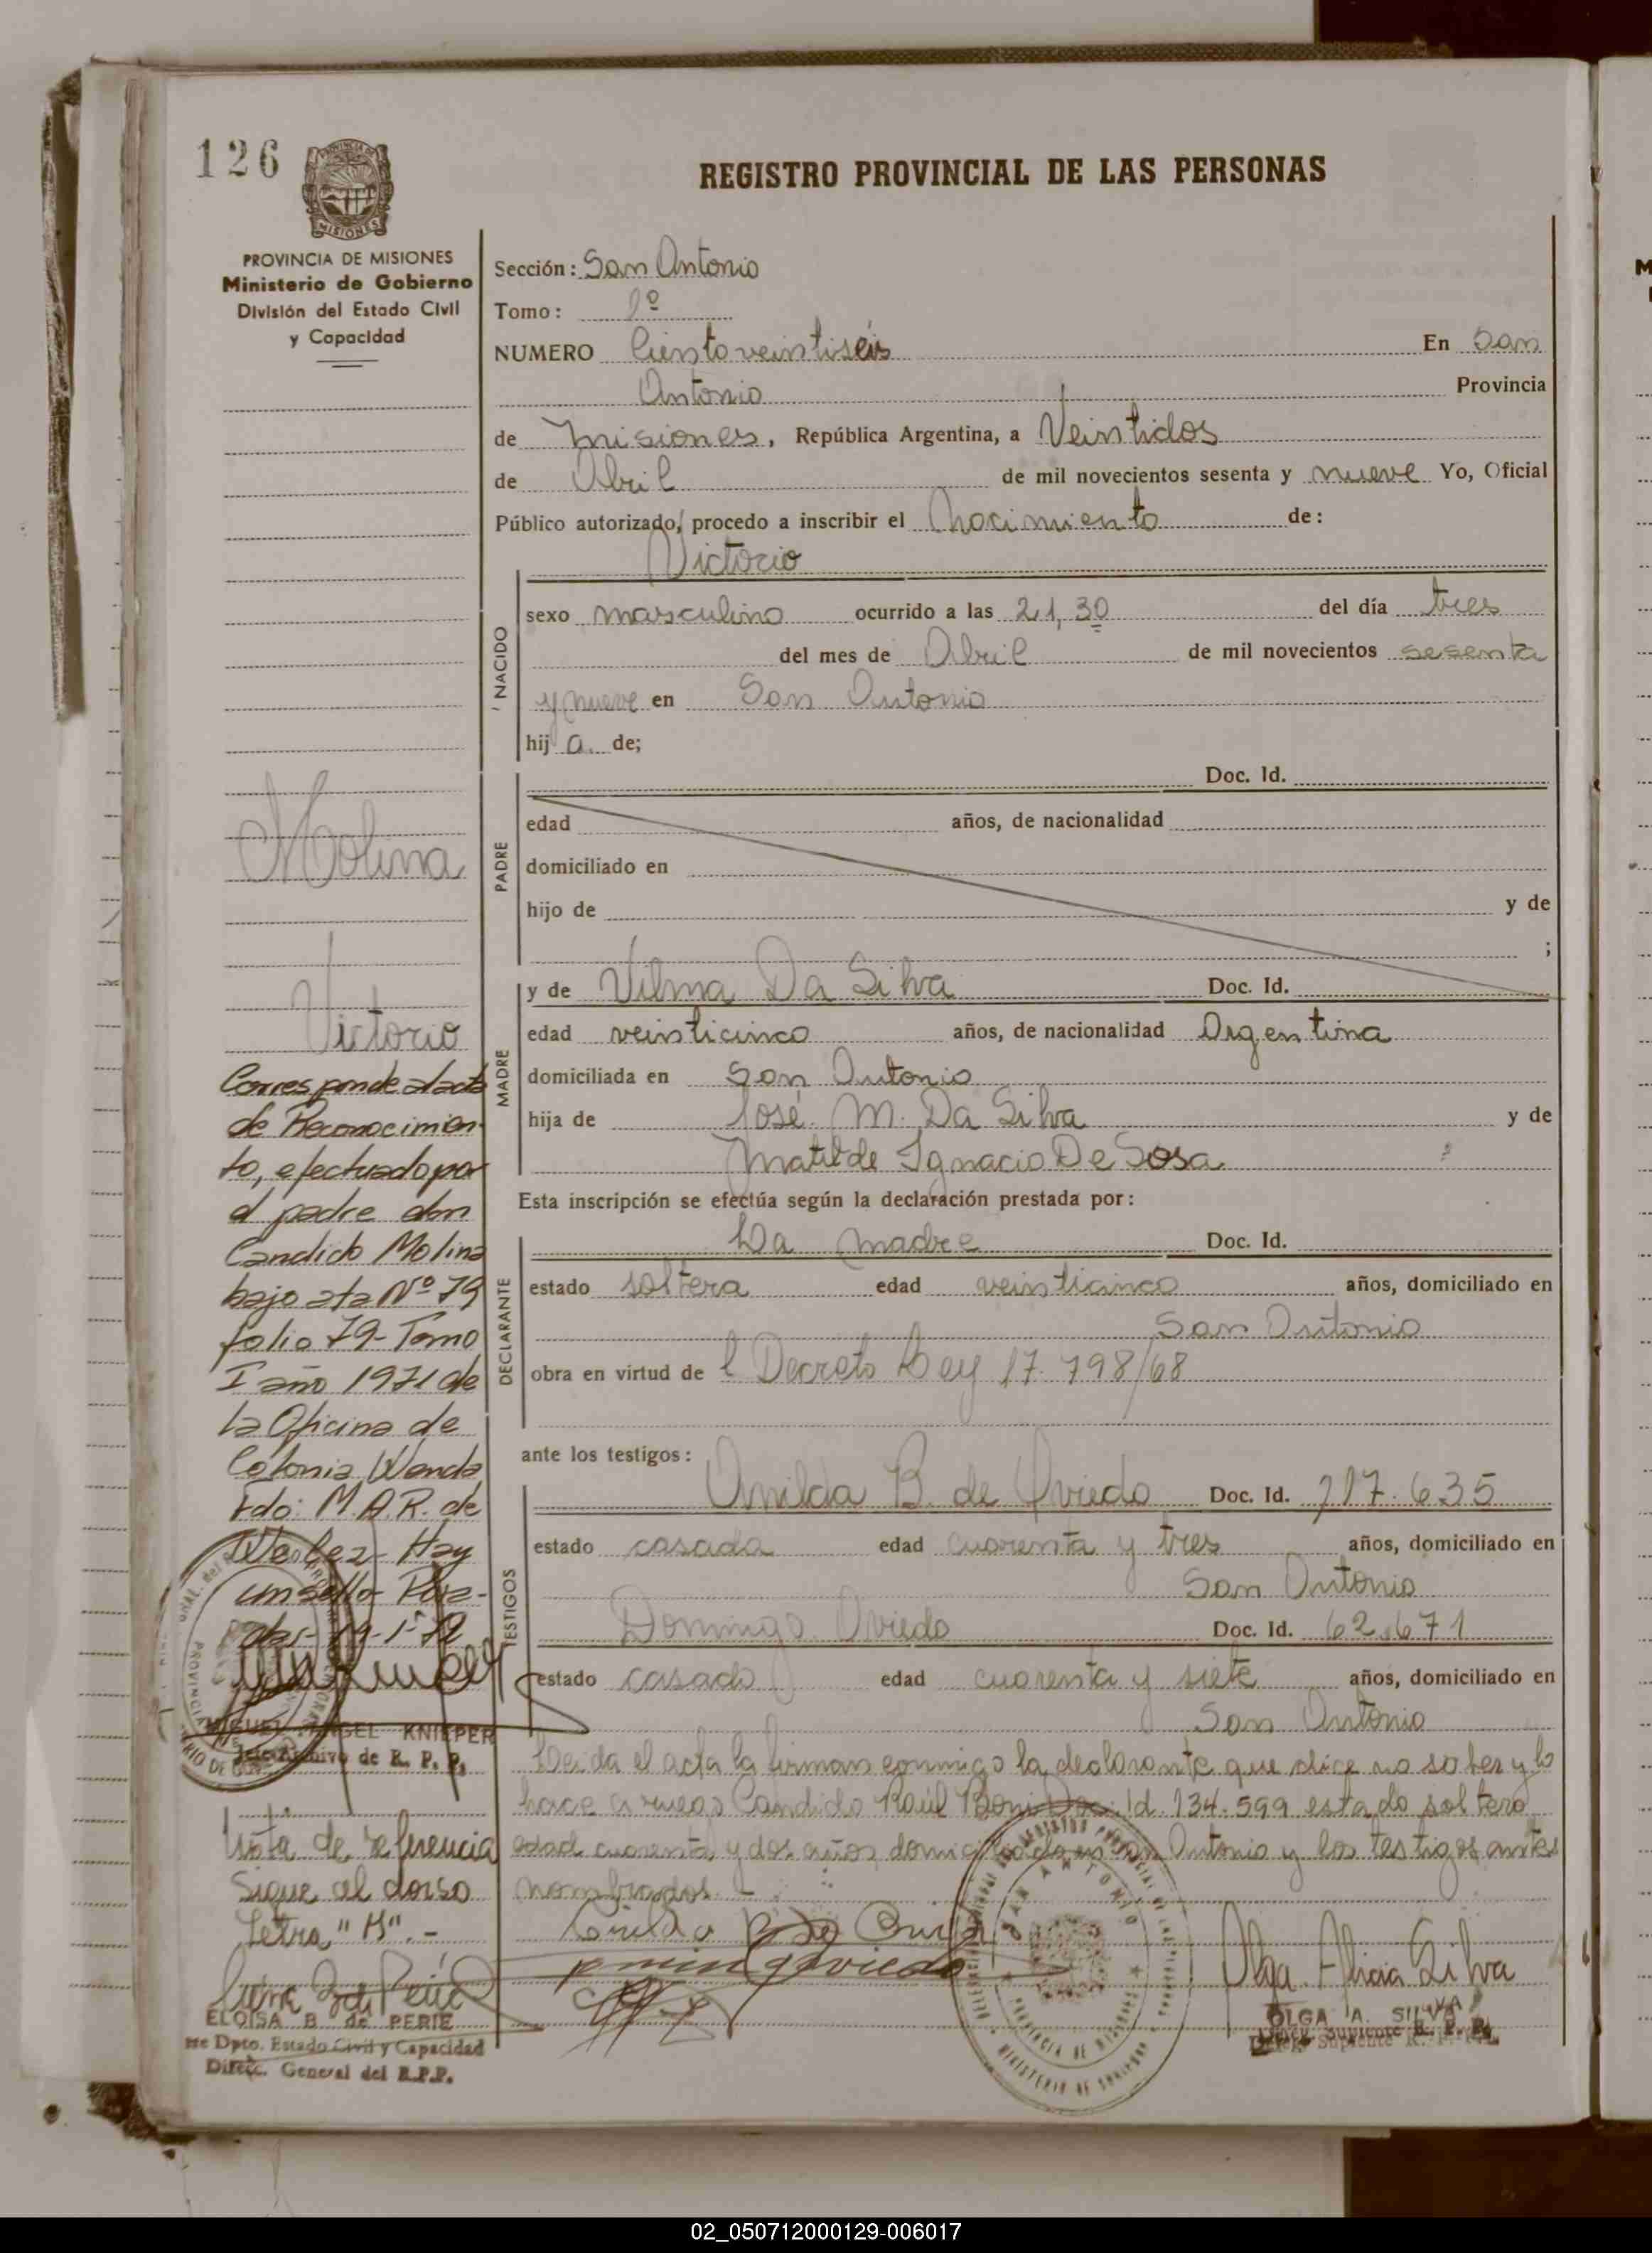 126
PROVINCIA DE MISIONES
MISIONES
PROVINCIA DE MISIONES
Ministerio de Gobierno
División del Estado Civil
y Capacidad
REGISTRO PROVINCIAL DE LAS PERSONAS
Sección: San Antonio
Tomo: 1º
NUMERO Ciento veintiséis En San
Antonio Provincia
de Misiones, República Argentina, a Veintidos
de Abril de mil novecientos sesenta y nueve Yo, Oficial
Público autorizado, procedo a inscribir el Nacimiento de:
Victorio
NACIDO
sexo masculino ocurrido a las 21,30 del día tres
del mes de Abril de mil novecientos sesenta
y nueve en San Antonio
hij a. de;
PADRE
Doc. Id.
edad años, de nacionalidad
domiciliado en
hijo de y de
;
MADRE
y de Vilma Da Silva Doc. Id.
edad veinticinco años, de nacionalidad Argentina
domiciliada en San Antonio
hija de José M. Da Silva y de
Matilde Ignacio De Sosa
Esta inscripción se efectúa según la declaración prestada por:
DECLARANTE
La madre Doc. Id.
estado soltera edad veinticinco años, domiciliado en
San Antonio
obra en virtud de l Decreto Ley 17.798/68
ante los testigos:
TESTIGOS
B. de Oviedo Doc. Id. 717.635
estado casada edad cuarenta y tres años, domiciliado en
San Antonio
Domingo Oviedo Doc. Id. 62.671
estado casado edad cuarenta y siete años, domiciliado en
San Antonio
Leida el acta la firman conmigo la declarante que dice no saber y lo
hace a ruego Candido Raúl Doc. Id. 134.599 estado soltero
edad cuarenta y dos años, domiciliado en San Antonio y los testigos antes
nombrados.-
Olga Alicia Silva
OLGA A. SILVA
Suplente R. P. P.
Molina
Victorio
Corresponde al acta
de Reconocimien-
to, efectuado por
el padre don
Candido Molina
bajo ata Nº 79
folio 79- Tomo
I año 1971 de
la Oficina de
Colonia Wanda
Fdo: M.A.R. de
Hay
un sello Posa-
das-
MIGUEL ANGEL KNIEPER
Jefe Archivo de R. P. P.
Nota de referencia
Sigue al dorso
Letra "H".-
ELOISA B de PERIE
Dpto. Estado Civil y Capacidad
Direc. General del R.P.P.
SAN ANTONIO
PROVINCIA DE MISIONES
MINISTERIO DE GOBIERNO
02_050712000129-006017